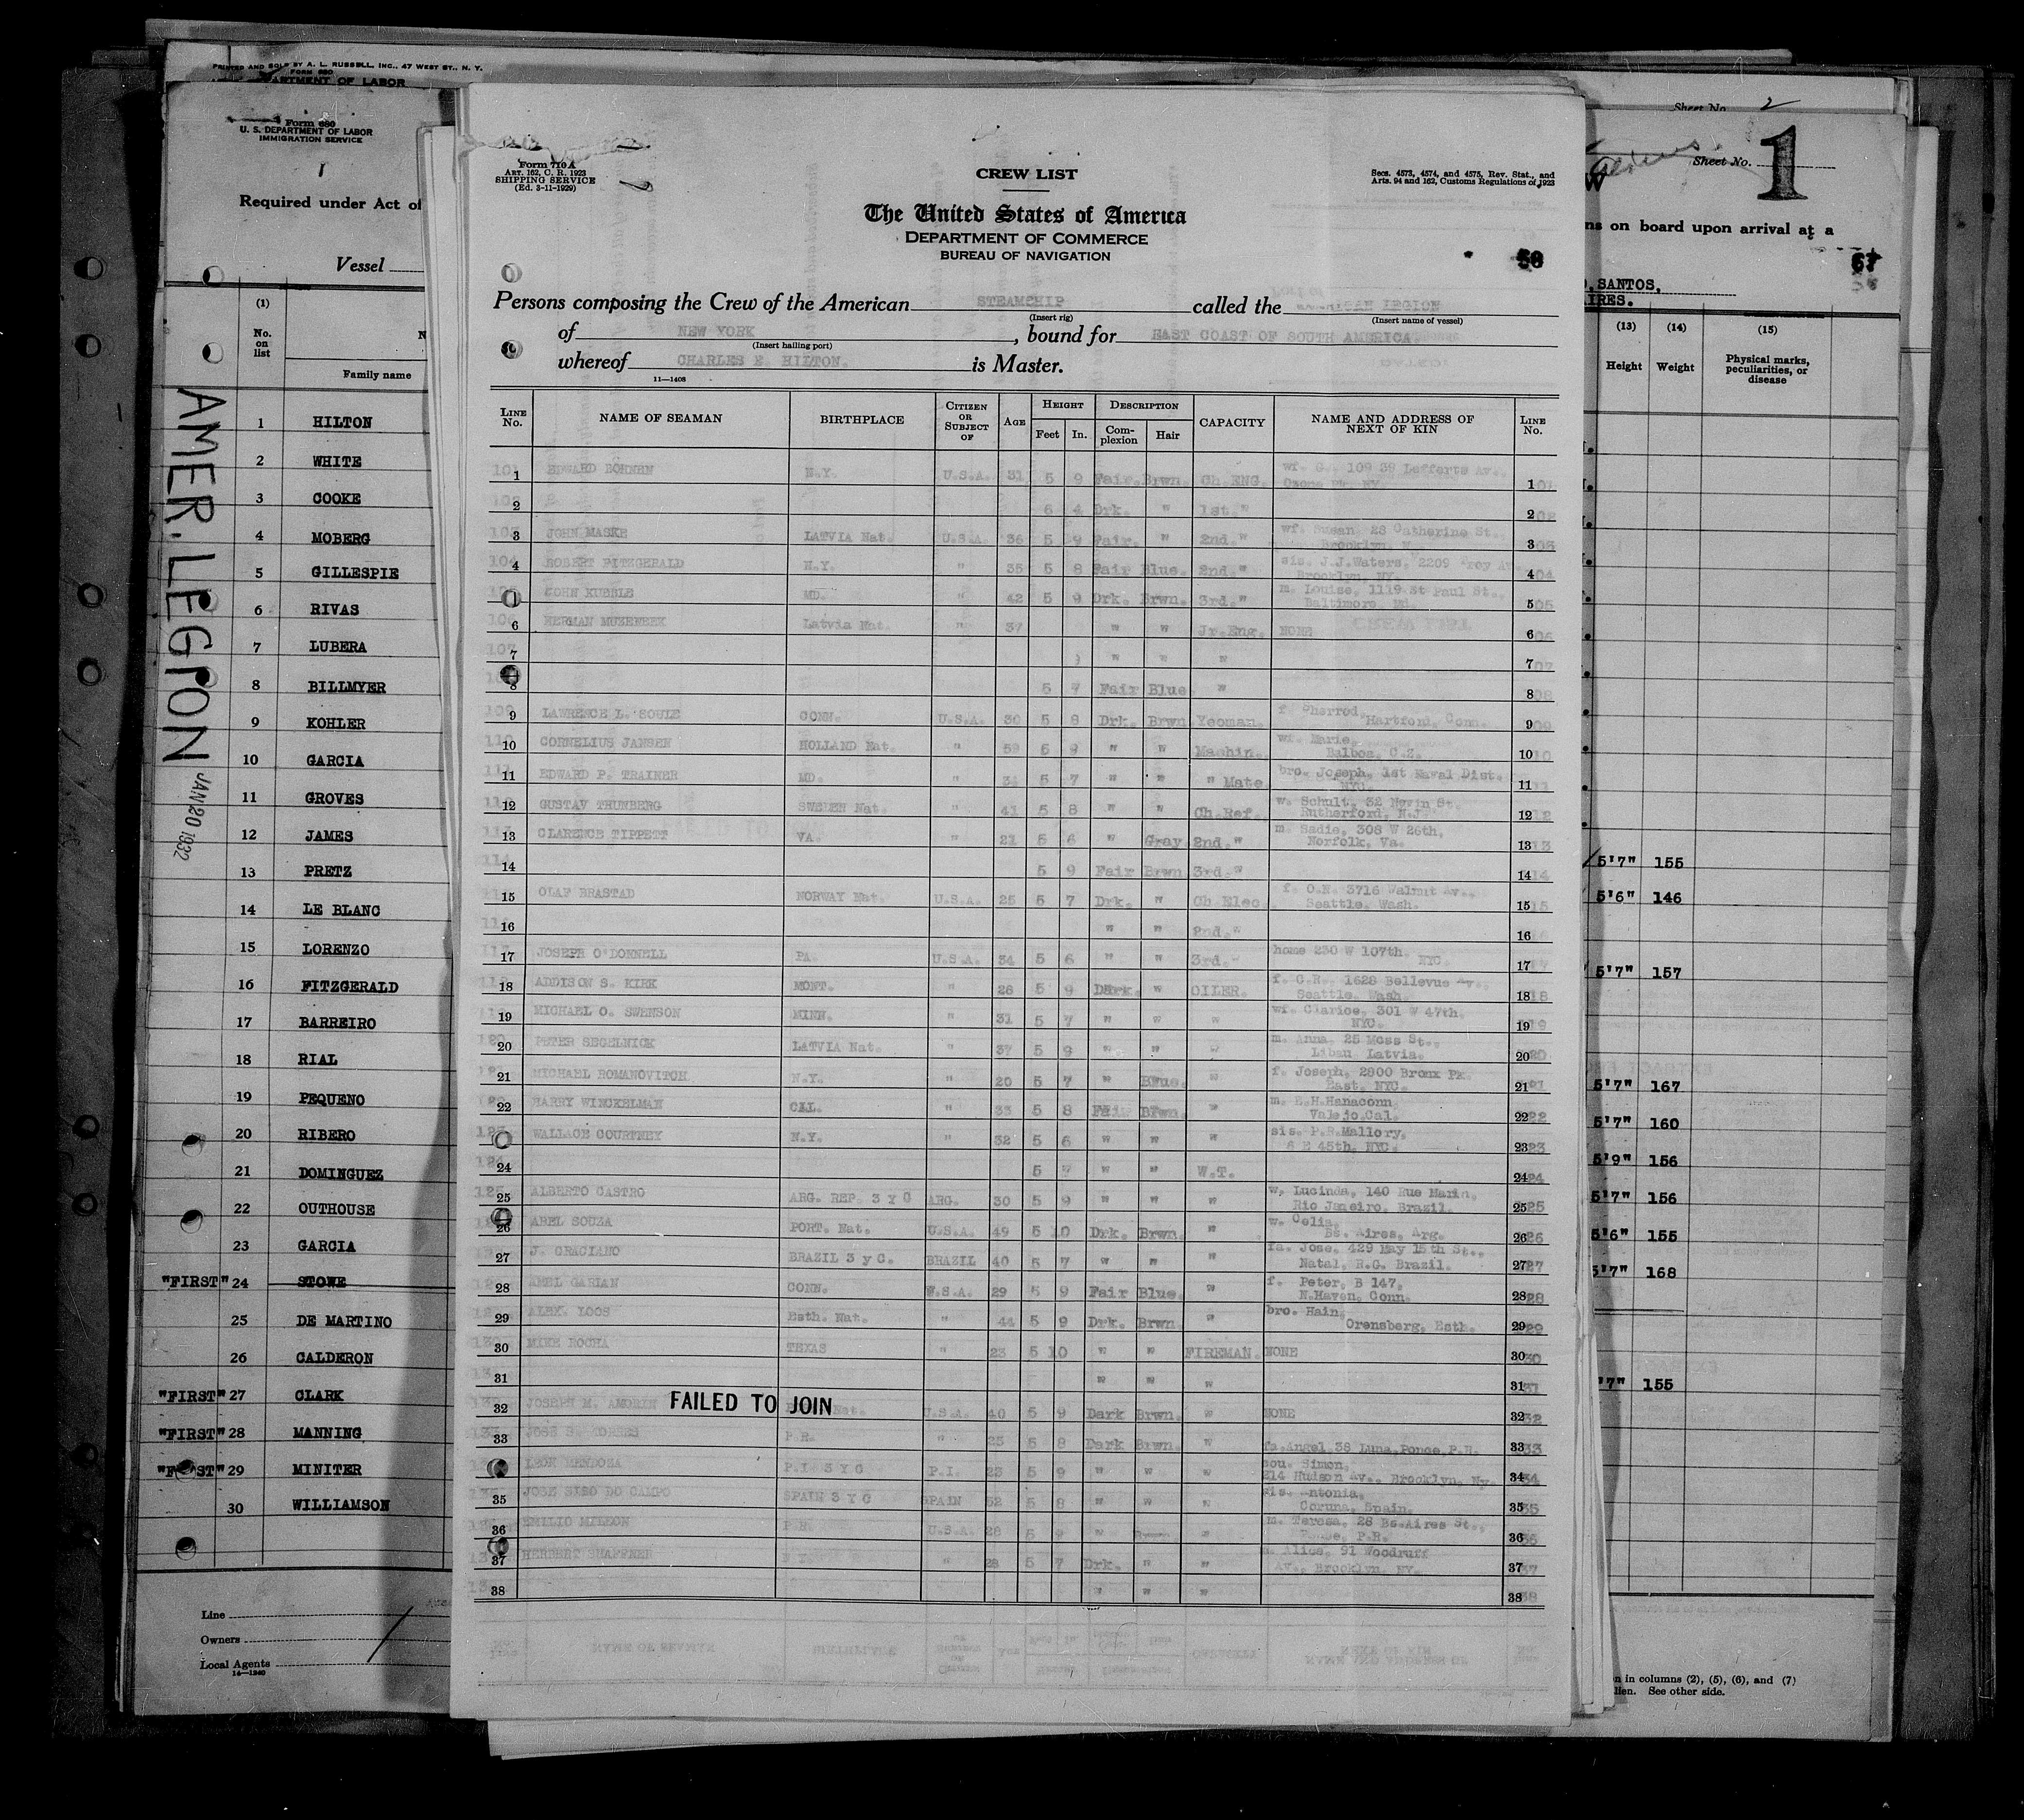 PRINTED AND SOLD BY A. L. RUSSELL, INC., 47 WEST ST., N. Y.
FORM 680
DEPARTMENT OF LABOR
Form 680
U. S. DEPARTMENT OF LABOR
IMMIGRATION SERVICE
Required under Act of
Vessel
(1)
No. on list
Family name
1 HILTON
2 WHITE
3 COOKE
4 MOBERG
5 GILLESPIE
6 RIVAS
7 LUBERA
8 BILLMYER
9 KOHLER
10 GARCIA
11 GROVES
12 JAMES
13 PRETZ
14 LE BLANC
15 LORENZO
16 FITZGERALD
17 BARREIRO
18 RIAL
19 PEQUENO
20 RIBERO
21 DOMINGUEZ
22 OUTHOUSE
23 GARCIA
"FIRST" 24 STOWE
25 DE MARTINO
26 CALDERON
"FIRST" 27 CLARK
"FIRST" 28 MANNING
"FIRST" 29 MINITER
30 WILLIAMSON
Line
Owners
Local Agents
14—1240
AMER. LEGION JAN 20 1932
Form 710 A
ART. 162, C. R. 1923
SHIPPING SERVICE
(Ed. 3-11-1929)
CREW LIST
Secs. 4573, 4574, and 4575, Rev. Stat., and
Arts. 94 and 162, Customs Regulations of 1923
The United States of America
DEPARTMENT OF COMMERCE
BUREAU OF NAVIGATION
Persons composing the Crew of the American STEAMSHIP called the AMERICAN LEGION
(Insert rig) (Insert name of vessel)
of NEW YORK, bound for EAST COAST OF SOUTH AMERICA
(Insert hailing port)
whereof CHARLES E. HILTON. is Master.
11—1408
LINE No. NAME OF SEAMAN BIRTHPLACE CITIZEN OR SUBJECT OF AGE HEIGHT Feet In. DESCRIPTION Complexion Hair CAPACITY NAME AND ADDRESS OF NEXT OF KIN LINE No.
1 EDWARD BOHNEN N.Y. U.S.A. 31 5 9 Fair. Brwn. Ch ENG. wf. G. 109 39 Lefferts Av. 1
2 6 4 Drk. " 1st." 2
3 JOHN MASKE LATVIA Nat. U.S.A. 36 5 9 Fair. " 2nd." wf. Susan 28 Catherine St., Brooklyn, 3
4 ROBERT FITZGERALD N.Y. " 35 5 8 Fair Blue. 2nd." sis. J.J.Waters, 2209 Troy Av Brooklyn, NY. 4
JOHN KUBBLE MD. " 42 5 9 Drk. Brwn. 3rd." m. Louise, 1119 St Paul St., Baltimore, Md. 5
6 HERMAN MUZEWEEK Latvia Nat. " 37 " " Jr.Eng. NONE 6
7 " " " 7
8 5 7 Fair Blue " 8
9 LAWRENCE L. SOULE CONN. U.S.A. 30 5 8 Drk. Brwn. Yeoman. f. Sherrod, Hartford, Conn. 9
10 CORNELIUS JANSEN HOLLAND Nat. " 59 5 9 " " Machin. wf. Marie, Balboa, C.Z. 10
11 EDWARD P. TRAINER MD. " 34 5 7 " " " Mate bro. Joseph, 1st Naval Dist. NYC. 11
12 GUSTAV THUNBERG SWEDEN Nat. " 41 5 8 " " Ch.Ref. w. Schult, 32 Nevin St. Rutherford, N.J. 12
13 CLARENCE TIPPETT VA. " 21 5 6 " Gray 2nd." m. Sadie, 308 W 26th, Norfolk, Va. 13
14 5 9 Fair Brwn 3rd." 14
15 OLAF BRASTAD NORWAY Nat. U.S.A. 25 5 7 Drk. " Ch Elec. f. O.N. 3716 Walnut Av., Seattle, Wash. 15
16 " " 2nd." 16
17 JOSEPH O'DONNELL PA. U.S.A. 34 5 6 " " 3rd." home 230 W 107th. NYC. 17
18 ADDISON S. KIRK MONT. " 26 5 9 Dark. " OILER. f. G.R. 1628 Bellevue Av., Seattle, Wash. 18
19 MICHAEL O. SWENSON MINN. " 31 5 7 " " " wf. Clarice, 301 W 47th. NYC. 19
20 PETER SEGELNICK LATVIA Nat. " 37 5 9 " " " m. Anna, 25 Moss St., Libau, Latvia. 20
21 MICHAEL ROMANOVITCH N.Y. " 20 5 7 " Blue. " f. Joseph, 2800 Bronx Pk. East. NYC. 21
22 HARRY WINCKELMAN CAL. " 33 5 8 Fair Brwn. " m. E.H.Hanaconn Valejo,Cal. 22
WALLACE COURTNEY N.Y. " 32 5 6 " " " sis. P.R.Mallory, 6 E 45th. NYC. 23
24 5 7 " " W.T. 24
25 ALBERTO CASTRO ARG. REP. 3 Y C ARG. 30 5 9 " " " w. Lucinda, 140 Rue Marin, Rio Janeiro, Brazil. 25
26 ABEL SOUZA PORT. Nat. U.S.A. 49 5 10 Drk. Brwn. " w. Celia, Bs. Aires, Arg. 26
27 J. GRACIANO BRAZIL 3 y C. BRAZIL 40 5 7 " " " fa. Jose, 429 May 15th St., Natal, R.G. Brazil. 27
28 ABEL GARIAN CONN. U.S.A. 29 5 9 Fair Blue. " f. Peter, B 147, N.Haven, Conn. 28
29 ALEX. LOOS Esth. Nat. " 44 5 9 Drk. Brwn. " bro. Hain, Orensberg, Esth. 29
30 MIKE ROCHA TEXAS " 23 5 10 " " FIREMAN. NONE 30
31 " " " 31
32 JOSEPH M. AMORIN FAILED TO JOIN Nat. U.S.A. 40 5 9 Dark Brwn. " NONE 32
33 JOSE TORRES P.R. " 25 5 8 Dark Brwn. " fa.Angel,38 Luna,Ponce,P.R. 33
LEON MENDOZA P.I 3 Y C P.I. 23 5 9 " " " cou. Simon, 214 Hudson Av., Brooklyn, Ny. 34
35 JOSE SISO DO CAMPO SPAIN 3 Y C SPAIN 52 5 8 " " " sis. Antonia, Coruna, Spain. 35
36 EMILIO P.R. U.S.A. 28 5 9 " " m. Teresa, 28 Bs.Aires St., Ponce, P.R. 36
37 HERBERT SHAFFNER " 28 5 7 Drk. " " Alice, 91 Woodruff Av., Brooklyn, NY. 37
38 " " " 38
Sheet No. 2
Sheet No. 1
ns on board upon arrival at a
67
SANTOS.
AIRES.
(13) (14) (15)
Height Weight Physical marks, peculiarities, or disease
5'7" 155
5'6" 146
5'7" 157
5'7" 167
5'7" 160
5'9" 156
5'7" 156
5'6" 155
5'7" 168
'7" 155
n in columns (2), (5), (6), and (7)
See other side.